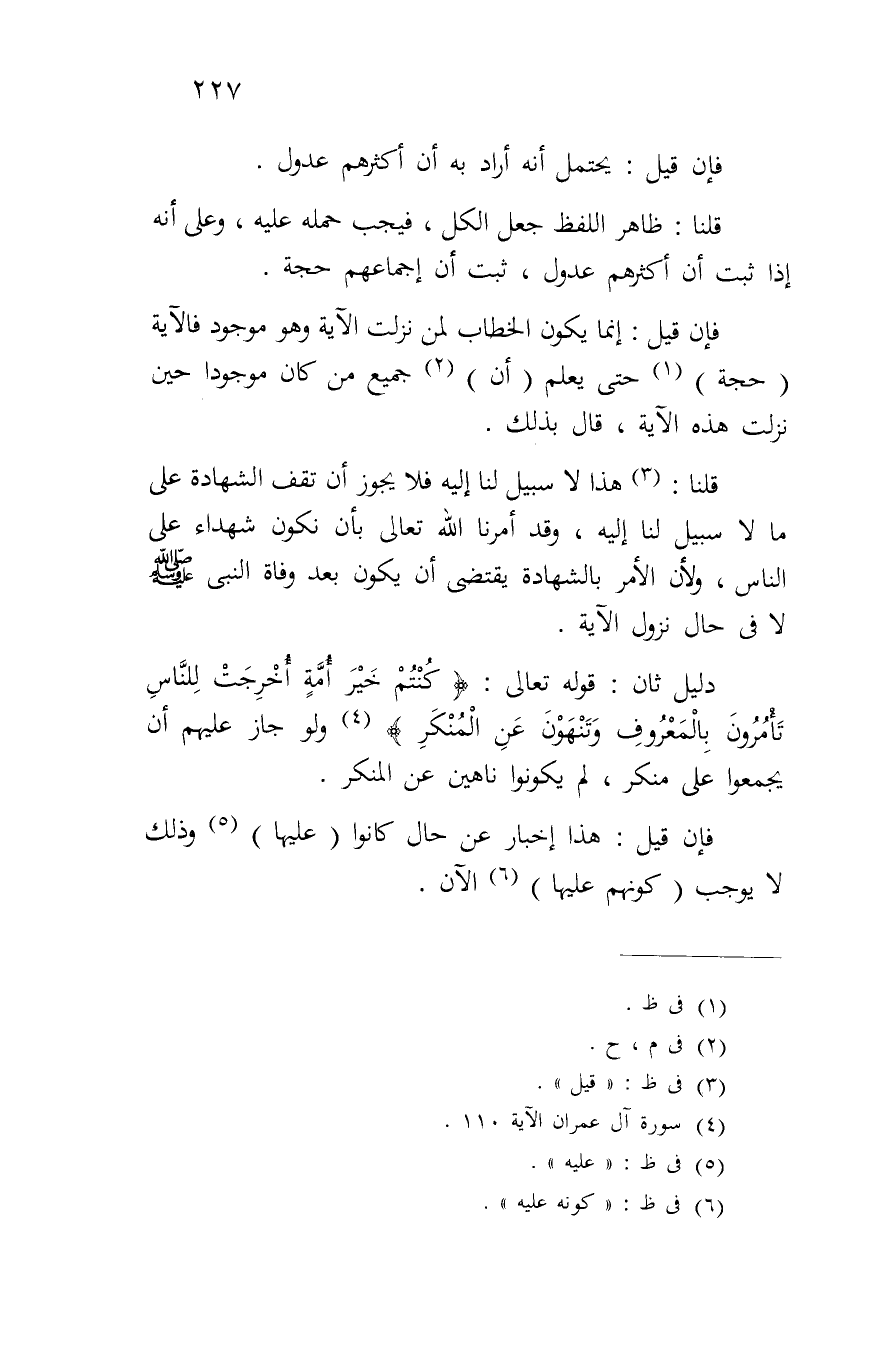 ٢٢٧
فإن قيل : يحتمل أنه أراد به أن أكثرهم عدول .
قلنا : ظاهر اللفظ جعل الكل ، فيجب حمله عليه ، وعلى أنه
إذا ثبت أن أكثرهم عدول ، ثبت أن إجماعهم حجة .
فإن قيل : إنما يكون الخطاب لمن نزلت الآية وهو موجود فالآية
( حجة ) (١) حتى يعلم ( أن ) (٢) جميع من كان موجودا حين
نزلت هذه الآية ، قال بذلك .
قلنا : (٣) هذا لا سبيل لنا إليه فلا يجوز أن تقف الشهادة على
ما لا سبيل لنا إليه ، وقد أمرنا الله تعالى بأن نكون شهداء على
الناس ، ولأن الأمر بالشهادة يقتضى أن يكون بعد وفاة النبى ﷺ
لا فى حال نزول الآية .
دليل ثان : قوله تعالى : ﴿ كُنْتُمْ خَيْرَ أُمَّةٍ أُخْرِجَتْ لِلنَّاسِ
تَأْمُرُونَ بِالْمَعْرُوفِ وَتَنْهَوْنَ عَنِ الْمُنْكَرِ ﴾ (٤) ولو جاز عليهم أن
يجمعوا على منكر ، لم يكونوا ناهين عن المنكر .
فإن قيل : هذا إخبار عن حال كانوا ( عليها ) (٥) وذلك
لا يوجب ( كونهم عليها ) (٦) الآن .
(١) فى ظ .
(٢) فى م ، ح .
(٣) فى ظ : « قيل » .
(٤) سورة آل عمران الآية ١١٠ .
(٥) فى ظ : « عليه » .
(٦) فى ظ : « كونه عليه » .